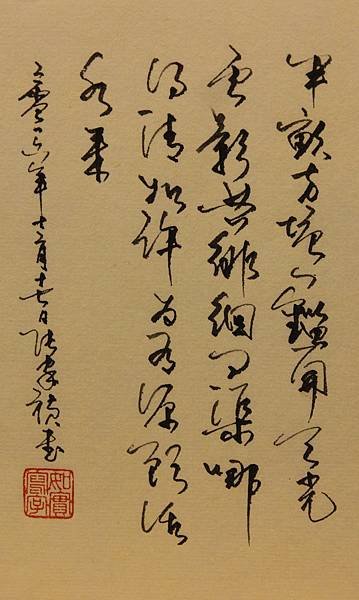 半畝方塘一鑑開天光
雲影共徘徊問渠哪
得清如許為有源頭活
水來
二零一六年十二月十七日張書